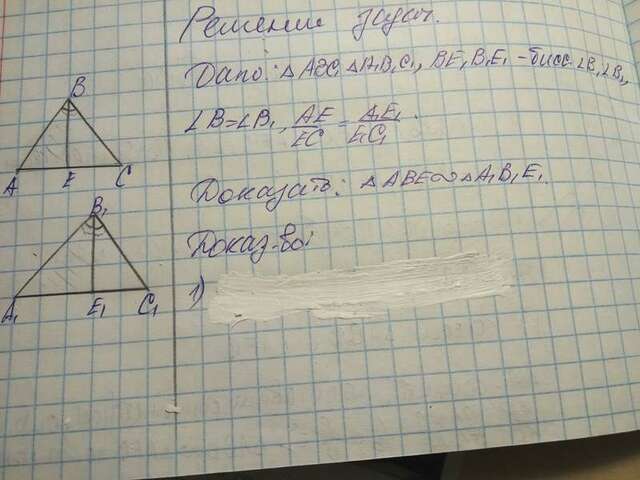 Решение задач.
Дано: △ABC, △A₁B₁C₁, BE, B₁E₁ - бисс. ∠B, ∠B₁,
∠B=∠B₁, AE/EC = A₁E₁/E₁C₁.
Доказать: △ABE∾△A₁B₁E₁.
Доказ-во:
1)
B
A E C
B₁
A₁ E₁ C₁